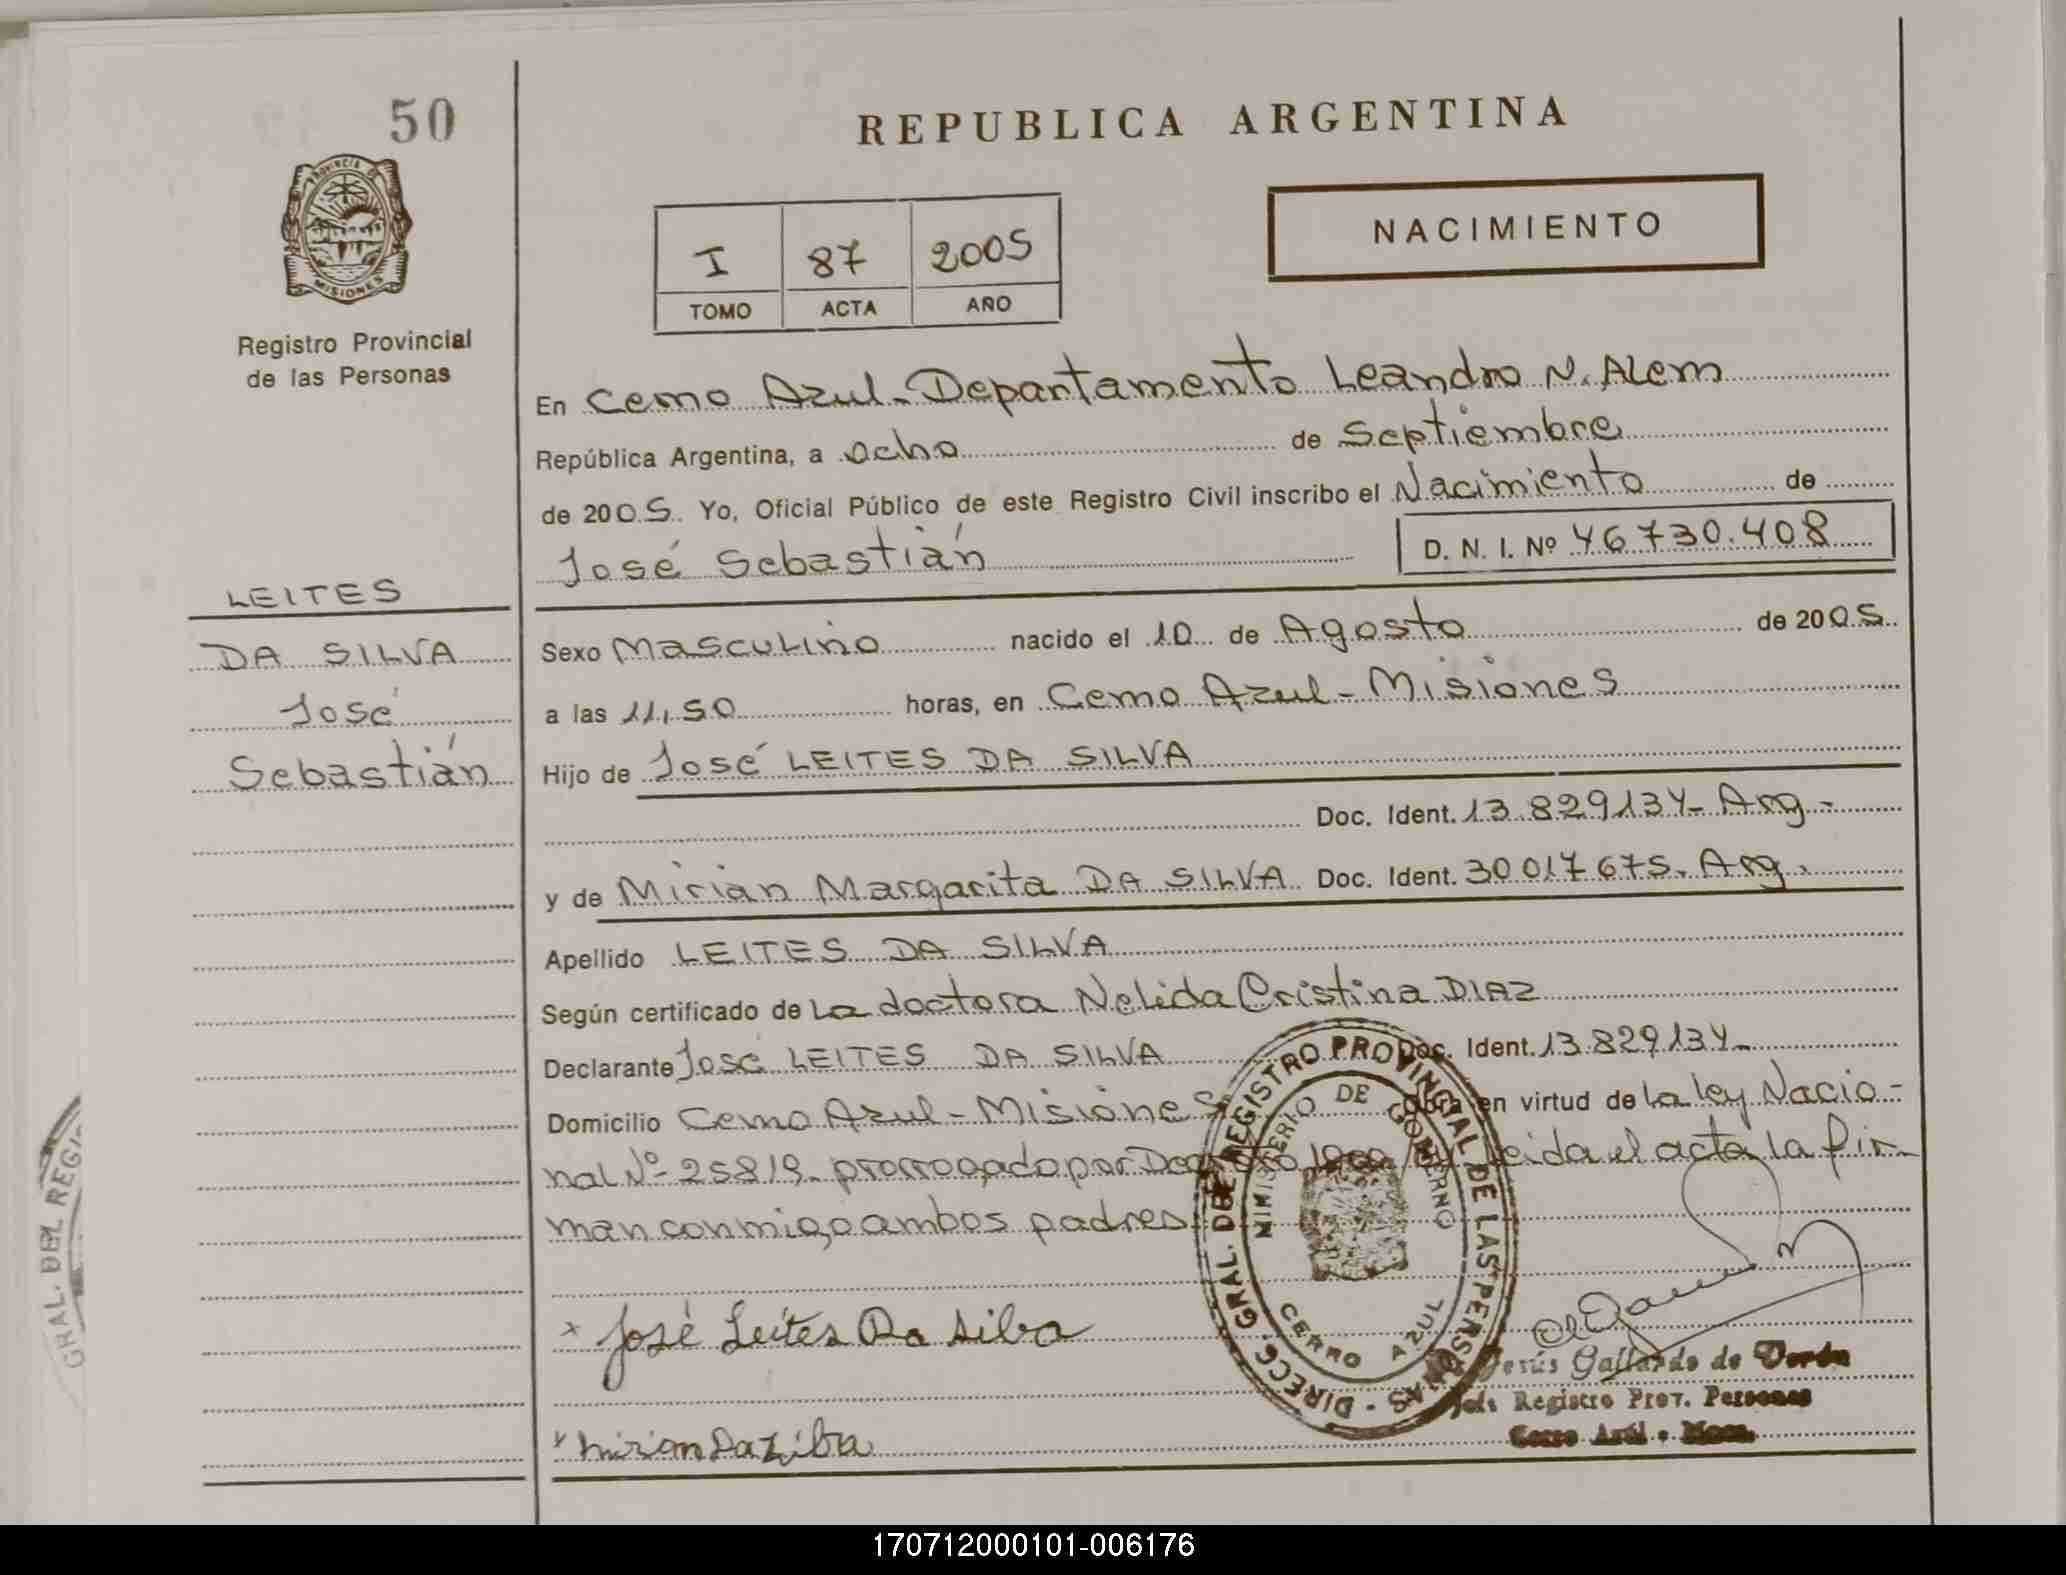 50
REPUBLICA ARGENTINA
NACIMIENTO
PROVINCIA DE
MISIONES
Registro Provincial
de las Personas
I 87 2005
TOMO ACTA AÑO
En Cerro Azul - Departamento Leandro N. Alem
República Argentina, a ocho de Septiembre
de 2005. Yo, Oficial Público de este Registro Civil inscribo el Nacimiento de
José Sebastián D. N. I. Nº 46730.408
LEITES
DA SILVA
José
Sebastián
Sexo Masculino nacido el 10 de Agosto de 2005.
a las 11,50 horas, en Cerro Azul - Misiones
Hijo de José LEITES DA SILVA
Doc. Ident. 13.829134 - Arg -
y de Mirian Margarita DA SILVA Doc. Ident. 30017675. Arg.
Apellido LEITES DA SILVA
Según certificado de La doctora Nelida Cristina DIAZ
Declarante José LEITES DA SILVA Doc. Ident. 13.829134 -
Domicilio Cerro Azul - Misiones Obra en virtud de La Ley Nacio-
nal Nº 25819 - prorrogado por leida el acta la fir-
man conmigo ambos padres
José Leites Da Silva
Mirian Da Zilba
DIRECC. GRAL. DEL REGISTRO PROVINCIAL DE LAS PERSONAS -
MINISTERIO DE GOBIERNO
CERRO AZUL
Jesús Gallardo de
Jefe Registro Prov. Personas
Cerro Azul - Mnes.
GRAL. DEL REGI
170712000101-006176